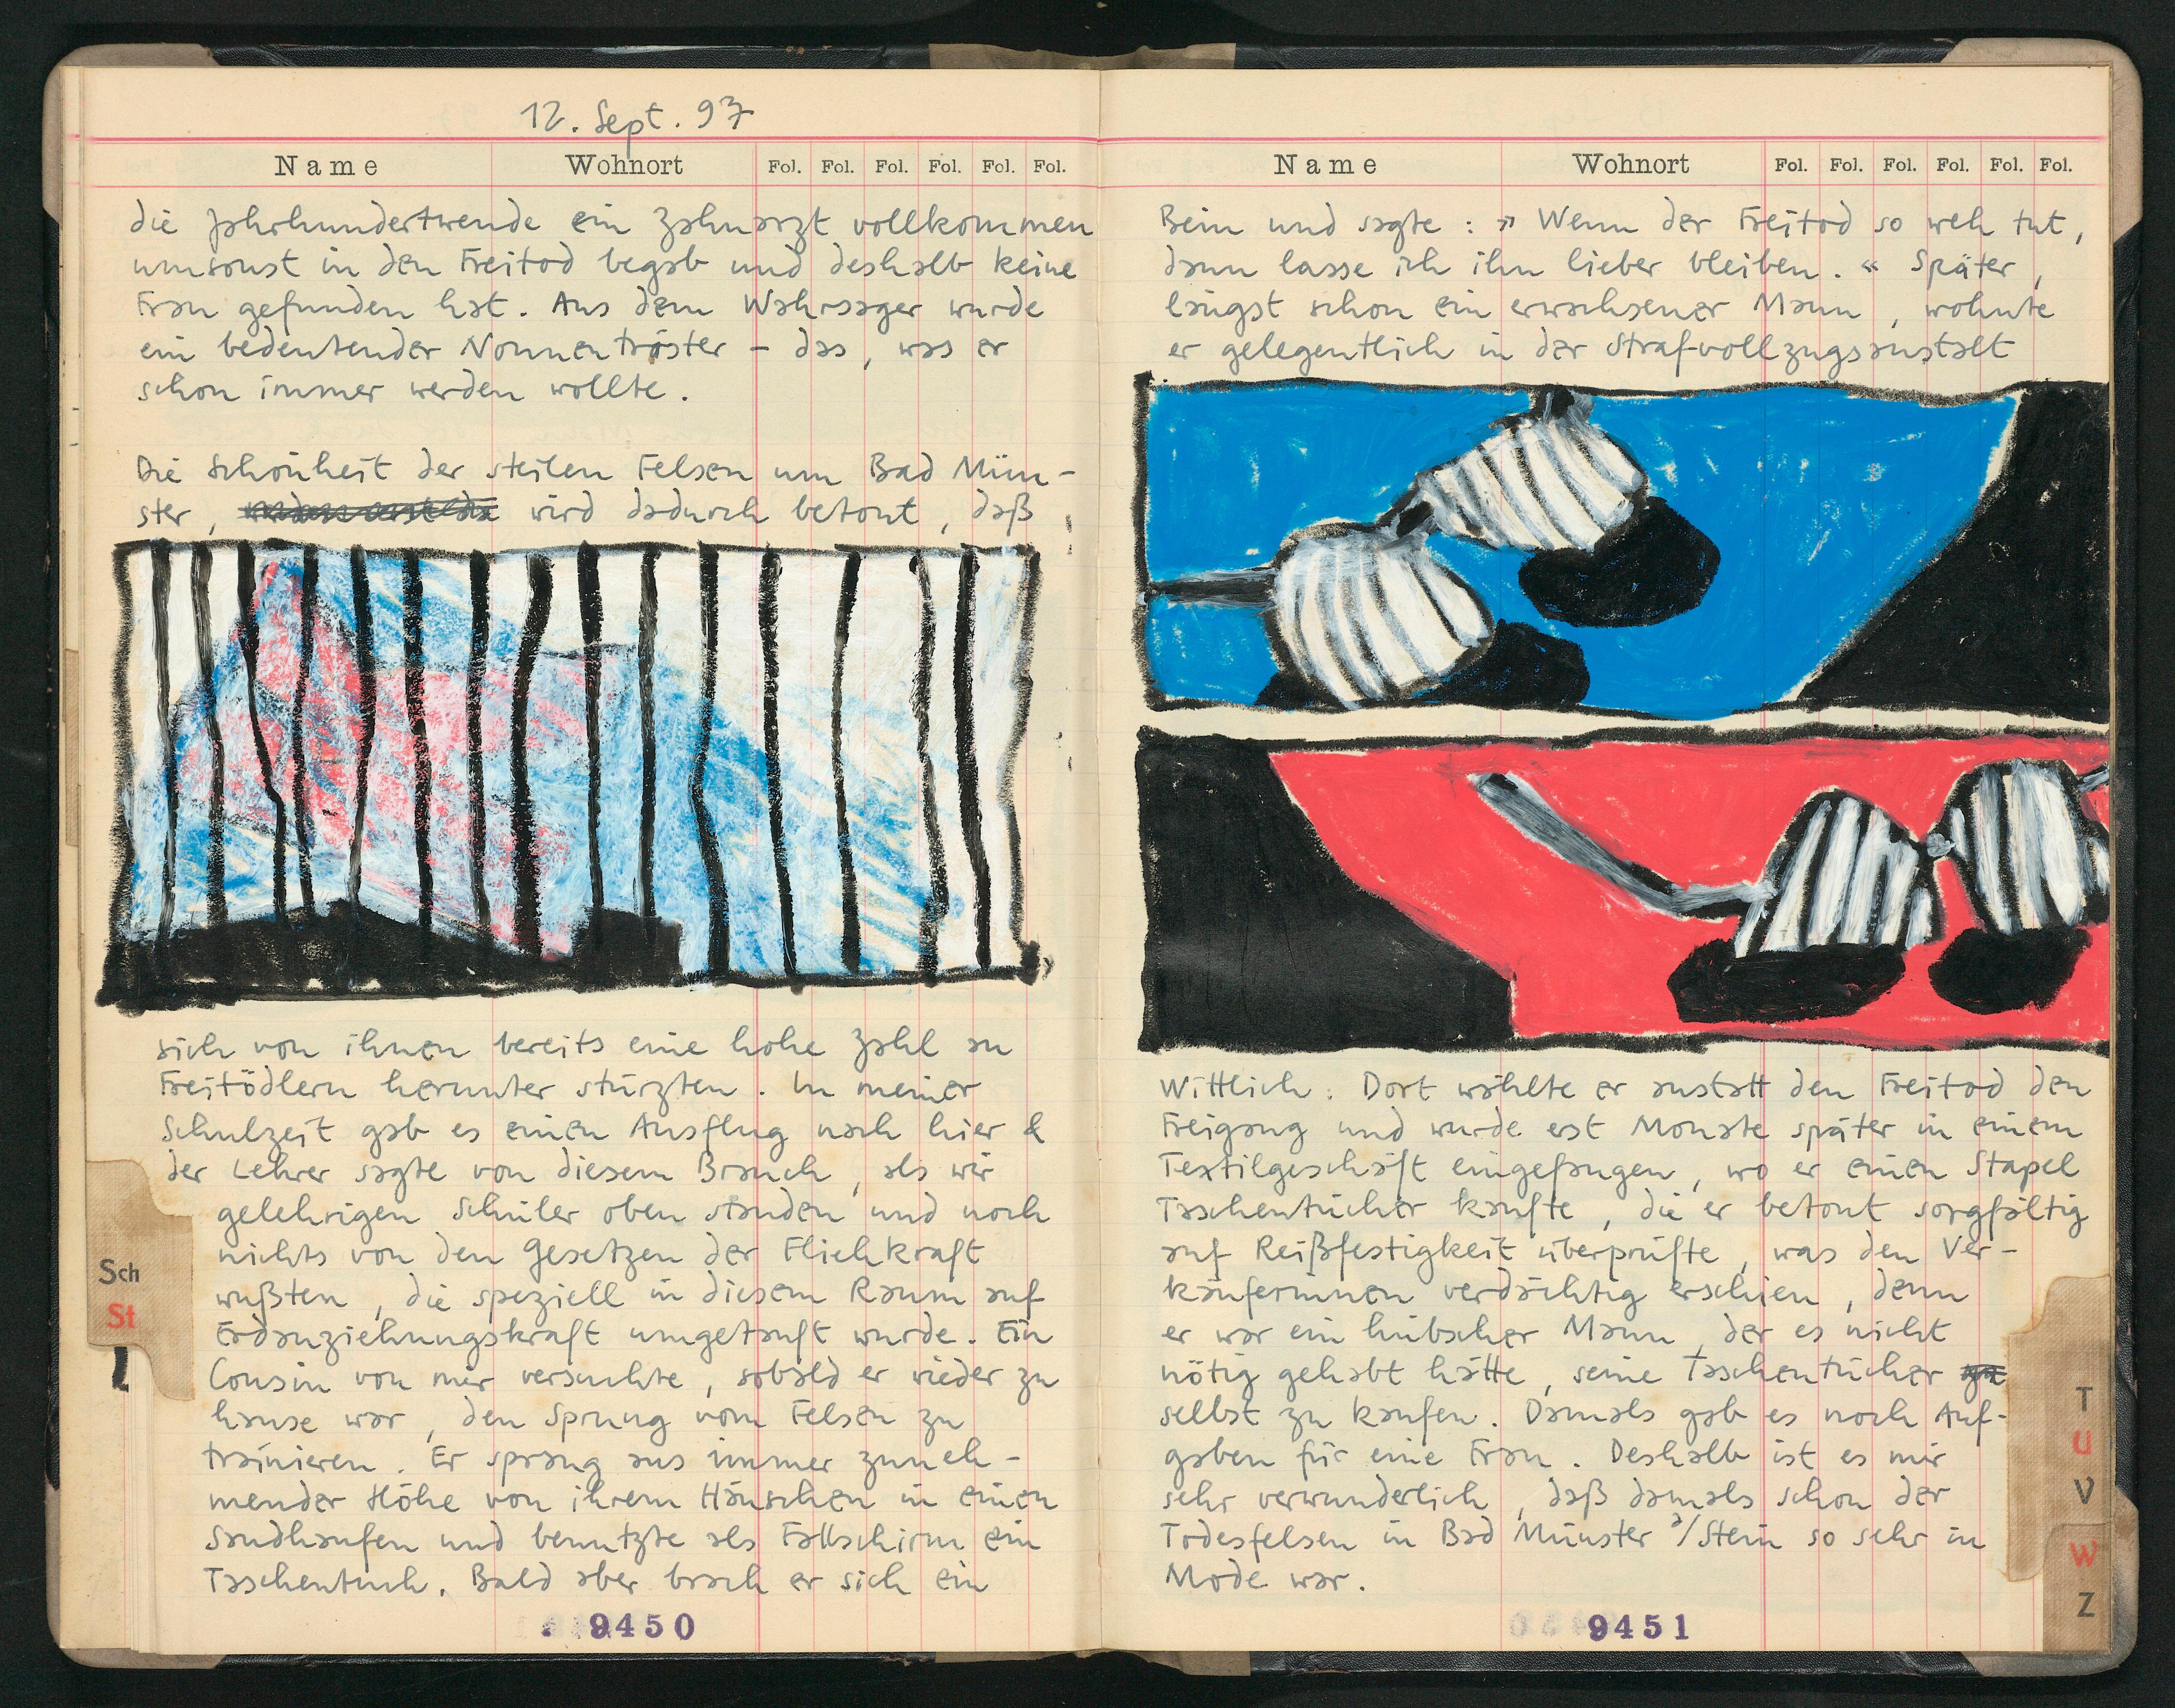 12. Sept. 97
Name Wohnort Fol. Fol. Fol. Fol. Fol. Fol.
die Jahrhundertwende ein Zahnarzt vollkommen
umsonst in den Freitod begab und deshalb keine
Frau gefunden hat. Aus dem Wahrsager wurde
ein bedeutender Nonnentröster – das, was er
schon immer werden wollte.
Die Schönheit der steilen Felsen um Bad Mün-
ster, wird dadurch betont, daß
sich von ihnen bereits eine hohe Zahl an
Freitödlern herunter stürzten. In meiner
Schulzeit gab es einen Ausflug nach hier &
der Lehrer sagte von diesem Brauch, als wir
gelehrigen Schüler oben standen und noch
nichts von den Gesetzen der Fliehkraft
wußten, die speziell in diesem Raum auf
Erdanziehungskraft umgetauft wurde. Ein
Cousin von mir versuchte, sobald er wieder zu
hause war, den Sprung vom Felsen zu
trainieren. Er sprang aus immer zuneh-
mender Höhe von ihrem Häuschen in einen
Sandhaufen und benutzte als Fallschirm ein
Taschentuch. Bald aber brach er sich ein
9450
Sch
St
Name Wohnort Fol. Fol. Fol. Fol. Fol. Fol.
Bein und sagte: » Wenn der Freitod so weh tut,
dann lasse ich ihn lieber bleiben. « Später,
längst schon ein erwachsener Mann, wohnte
er gelegentlich in der Strafvollzugsanstalt
Wittlich. Dort wählte er anstatt den Freitod den
Freigang und wurde erst Monate später in einem
Textilgeschäft eingefangen, wo er einen Stapel
Taschentücher kaufte, die er betont sorgfältig
auf Reißfestigkeit überprüfte, was den Ver-
käuferinnen verdächtig erschien, denn
er war ein hübscher Mann, der es nicht
nötig gehabt hätte, seine Taschentücher
selbst zu kaufen. Damals gab es noch Auf-
gaben für eine Frau. Deshalb ist es mir
sehr verwunderlich, daß damals schon der
Todesfelsen in Bad Münster a/Stein so sehr in
Mode war.
9451
T
U
V
W
Z